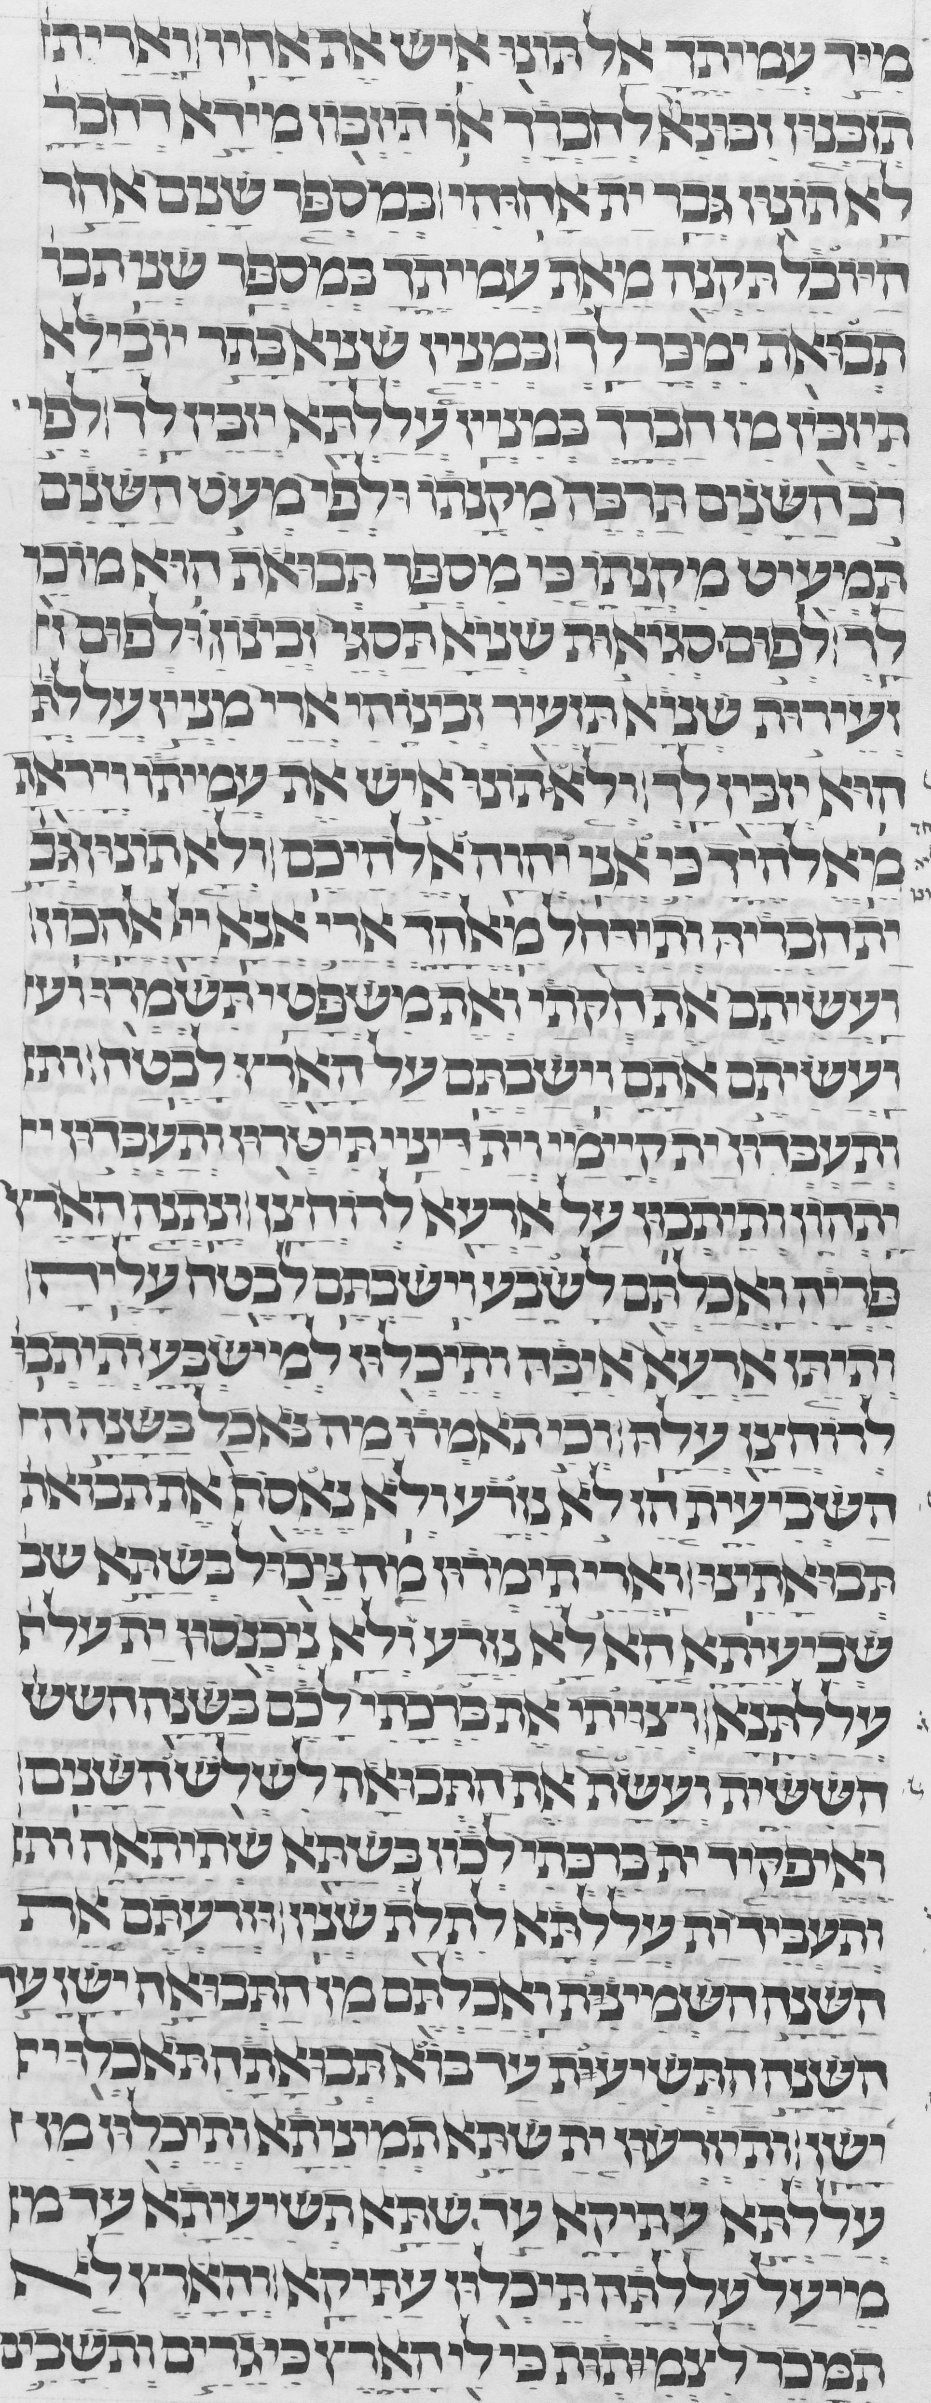 מיד עמיתך אל תונו איש את אחיו וארי ת׳
תזבנון זבונא לחברך או תיזבון מידא דחבר
לא תונון גבר ית אחוהי במספר שנים אחר
היובל תקנה מאת עמיתך במספר שני תבו
תבואת ימכר לך במנין שניא בתר יובילא
תיזבון מן חברך במניין עללתא יזבין לך לפי
רב השנים תרבה מקנתו ולפי מעט השנים
תמעיט מקנתו כי מספר תבואת הוא מוכר
לך לפום סגיאות שניא תסגי זבינוהי ולפום ז׳
זעירות שניא תזעיר זבינוהי ארי מנין עללת
הוא יזבין לך ולא תונו איש את עמיתו ויראת
מאלהיך כי אני יהוה אלהיכם ולא תונון גב
ית חבריה ותידחל מאלהך ארי אנא ייי אלהכון
ועשיתם את חקתי ואת משפטי תשמרו ועש
ועשיתם אתם וישבתם על הארץ לבטח ות׳
ותעבדון ית קיימיי וית דיניי תיטרון ותעבדון י׳
יתהון ותיתבון על ארעא לרוחצן ונתנה הארץ
פריה ואכלתם לשבע וישבתם לבטח עליה
ותיתן ארעא איבה ותיכלון למישבע ותיתבו
לרוחצן עלה וכי תאמרו מה נאכל בשנה ה׳
השביעית הן לא נזרע ולא נאסף את תבואת
תבואתינו וארי תימרון מה ניכול בשתא שב
שביעיתא הא לא נזרע ולא ניכנוס ית עלל
עללתנא וצויתי את ברכתי לכם בשנה השש
הששית ועשת את התבואת לשלש השנים
ואיפקיד ית ברכתי לכון בשתא שתיתאה ות׳
ותעביד ית עללתא לתלת שנין וזרעתם את
השנה השמינית ואכלתם מן התבואה ישן עד
השנה התשיעית עד בוא תבואתה תאכלו י׳
ישן ותיזרעון ית שתא תמיניתא ותיכלון מן
עללתא עתיקא עד שתא תשיעיתא עד מ׳
מייעל עללתה תיכלון עתיקא והארץ לא
תמכר לצמיתות כי לי הארץ כי גרים ותשבים